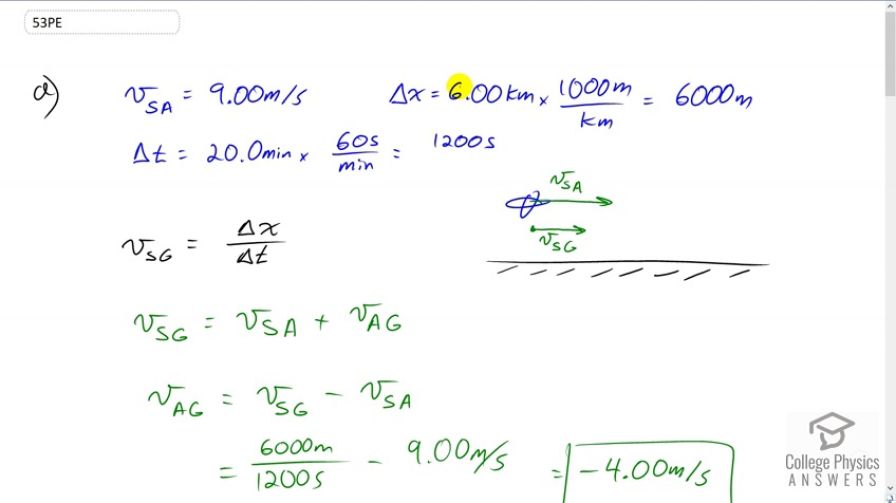 53PE
a) v_SA = 9.00m/s Δx = 6.00km × 1000m/km = 6000m
Δt = 20.0min × 60s/min = 1200s
v_SA
v_SG
v_SG = Δx/Δt
v_SG = v_SA + v_AG
v_AG = v_SG − v_SA
= 6000m/1200s − 9.00m/s = −4.00m/s
College Physics
ANSWERS